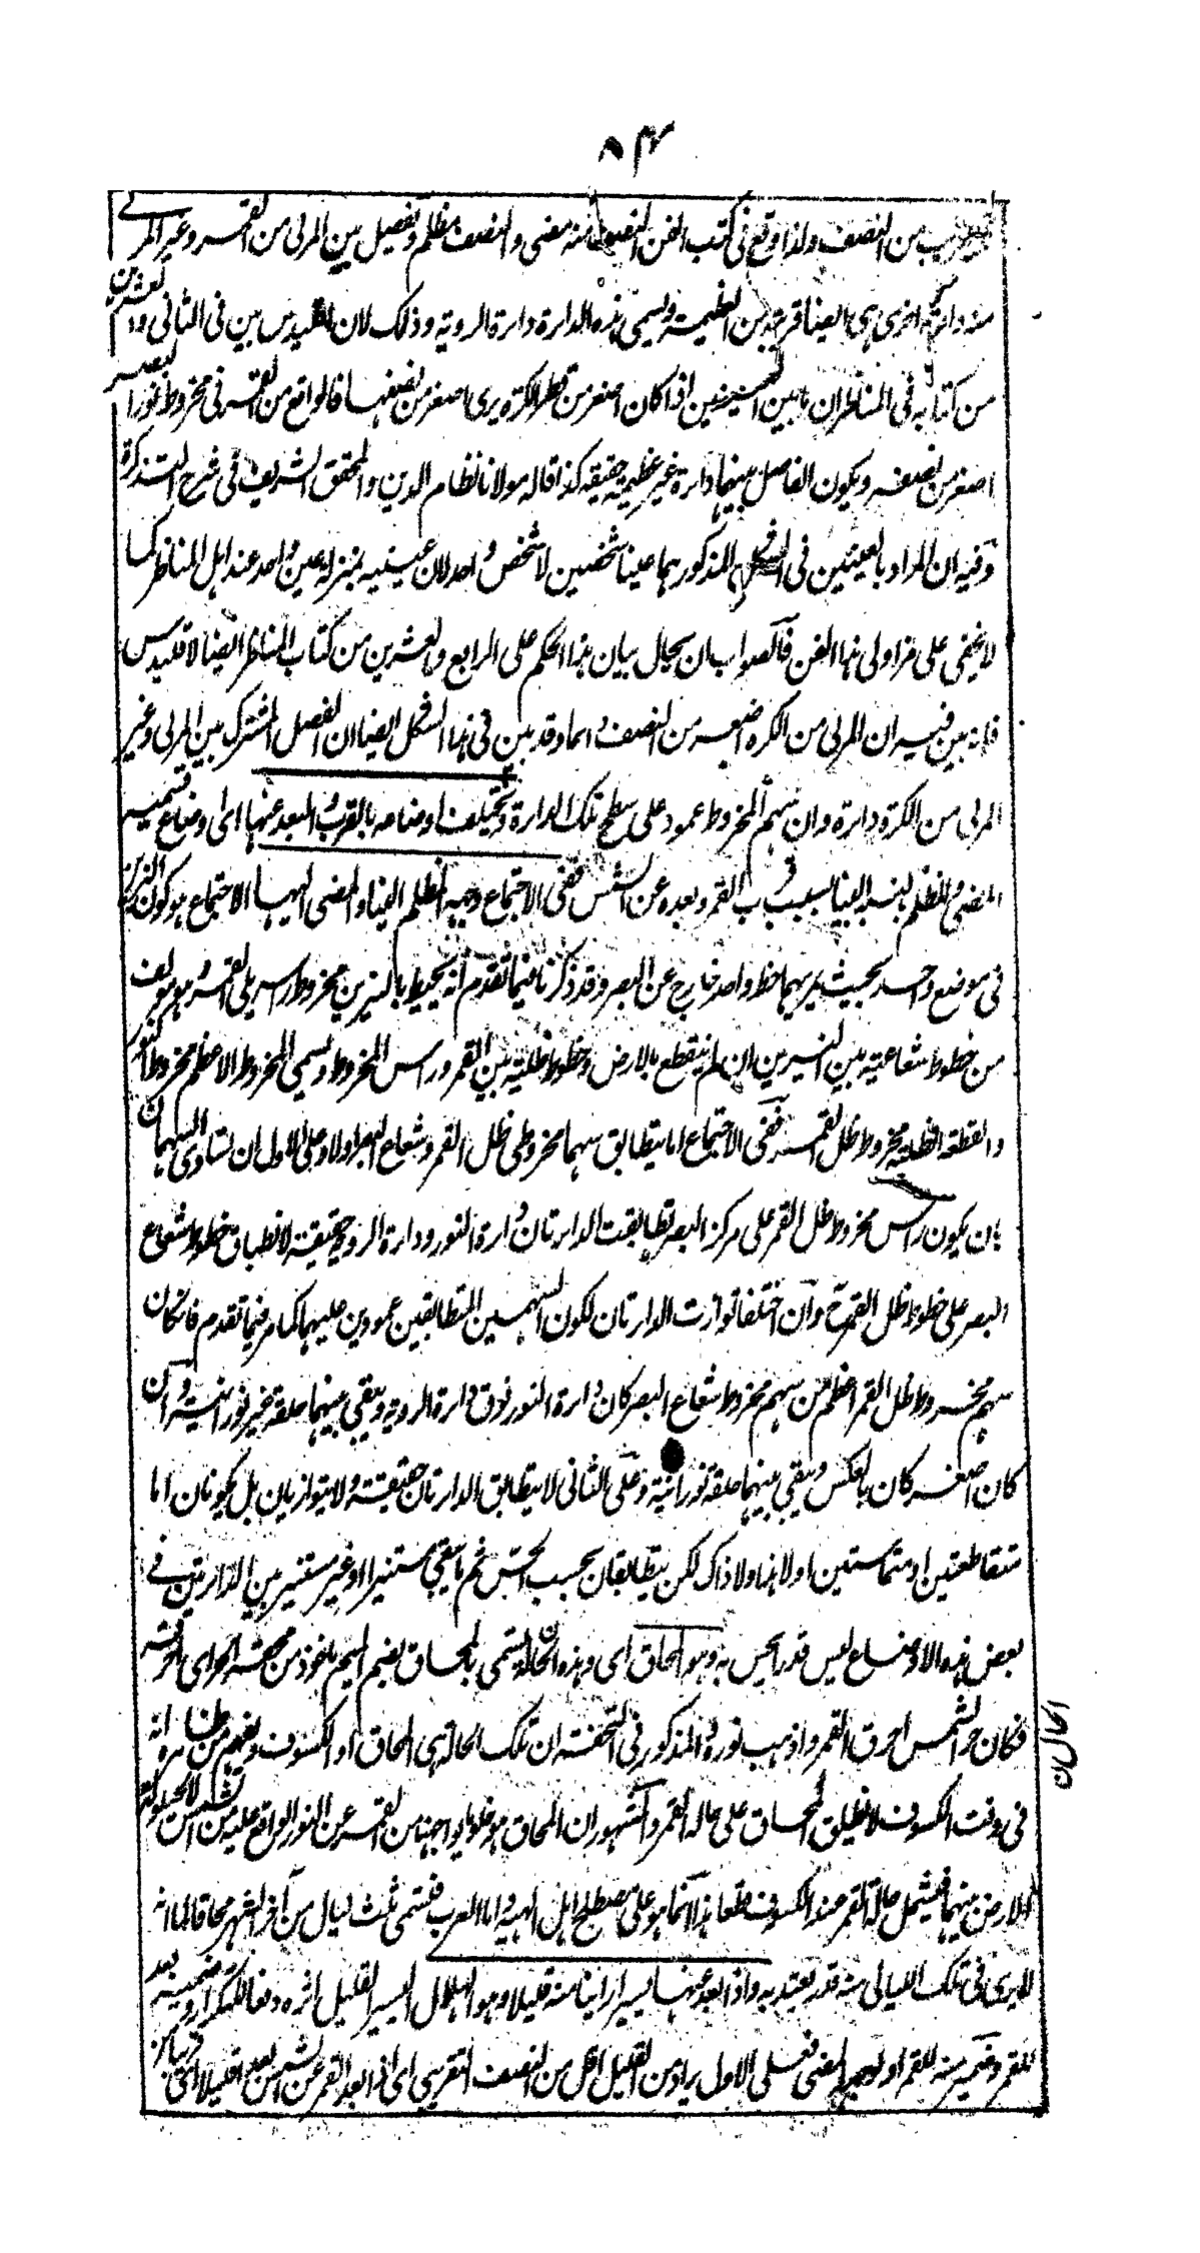 ٨٣
من النصف ولذا وقع فى كتب الفن النصف منه مضئ والنصف مظلم ويفصل بين المرئى من القمر وغير المرئى
منه دائرة اخرى هى ايضا قريبة من العظيمة وتسمى هذه الدائرة دائرة الروية وذلك لان اقليدس بين فى الثانى والعشرين
من كتابه فى المناظر ان ما بين العينين اذا كان اصغر من قطر الكرة يرى اصغر من نصفها فالواقع من القمر فى مخروط نور البصر
اصغر من نصفه ويكون الفاصل بينهما دائرة غير عظيمة حقيقة كذا قاله مولانا نظام الدين والمحقق الشريف فى شرح التذكرة
وفيه ان المراد بالعينين فى الشكل المذكور هما عينا شخصين لا شخص واحد لان عينيه بمنزلة عين واحد عند اهل المناظر كما
لا يخفى على مزاولى هذا الفن فالصواب ان يحال بيان هذا الحكم على الرابع والعشرين من كتاب المناظر ايضا لاقليدس
فانه بين فيه ان المرئى من الكرة اصغر من النصف دائما وقد بين فى هذا الشكل ايضا ان الفصل المشترك بين المرئى وغير
المرئى من الكرة دائرة وان سهم المخروط عمود على سطح تلك الدائرة وتختلف اوضاعه بالقرب والبعد عنها اى اوضاع قسميه
المضئ والمظلم بالنسبة الينا بسبب قرب القمر وبعده عن الشمس ففى الاجتماع وجهه المظلم الينا والمضئ اليها الاجتماع هو كون النيرين
فى موضع واحد بحيث يمر بهما خط واحد خارج عن البصر وقد ذكرنا فيما تقدم انه يحيط بالنيرين مخروط راسه يلى القمر وهو مؤلف
من خطوط شعاعية بين النيرين ان لم ينقطع بالارض وخطوط ظلية بين القمر وراس المخروط ويسمى المخروط الاعظم مخروط النور
والقطعة الظلية مخروط ظل القمر ففى الاجتماع اما يتطابق سهما مخروطى ظل القمر وشعاع البصر اولا وعلى الاول ان تساوى السهمان
بان يكون راس مخروط ظل القمر على مركز البصر تطابقت الدائرتان دائرة النور ودائرة الروية حقيقة لانطباق خطوط شعاع
البصر على خطوط ظل القمرح وان اختلفا توازت الدائرتان لكون السهمين المتطابقين عمودين عليهما كما مر فيما تقدم فان كان
سهم مخروط ظل القمر اعظم من سهم مخروط شعاع البصر كان دائرة النور فوق دائرة الروية ويبقى بينهما حلقة غير نورانية وان
كان اصغر كان بالعكس ويبقى بينهما حلقة نورانية وعلى الثانى لا يتطابق الدائرتان حقيقة ولا يتوازيان بل يكونان اما
متقاطعتين او متماستين اولا هذا ولا ذاك لكن يتطابقان بحسب الحس ثم ما يبقى مستنيرا او غير مستنير بين الدائرتين فى
بعض هذه الاوضاع ليس قدر يحس به وهو المحاق اى وهذه الحالة تسمى بالمحاق بضم الميم ماخوذ من محشه الحر اى احرقته
فكان حر الشمس احرق القمر واذهب نوره والمذكور فى التحفة ان تلك الحالة هى المحاق او الكسوف ويفهم من ظاهره انه
الحالان
فى وقت الكسوف لا يطلق المحاق على حالة القمر والمشهور ان المحاق هو خلو ما يواجهنا من القمر عن النور الواقع عليه من الشمس لا لحيلولة
الارض بينهما فيشمل حالة القمر عند الكسوف قطعا هذا انما هو على مصطلح اهل الهيئة واما العرب فتسمى ثلث ليال من آخر الشهر محاقا لما انه
لا يرى فى تلك الليالى منه قدر يعتد به واذا بعد عنها يسيرا راينا منه قليلا وهو الهلال اليسير القليل اثره دفعا للتكرار وضمير بعد
للقمر وضمير منه للقمر او لوجهه المضئ فعلى الاول يراد من القليل اقل من النصف التقريبى اى اذا بعد القمر عن الشمس بعدا قليلا اى قريبا من